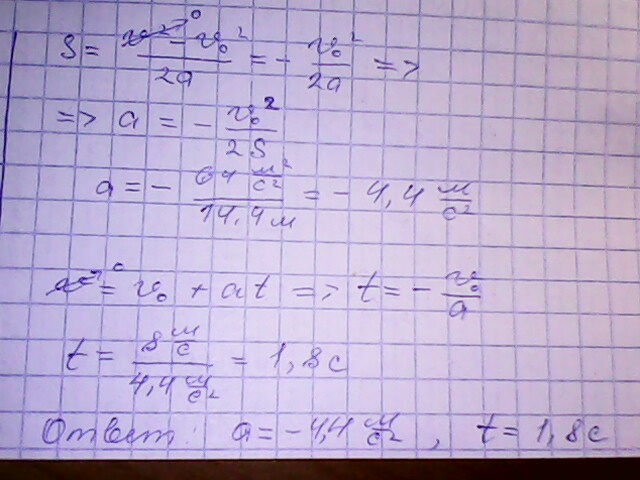 S = (v² →⁰ - v₀²)/2a = - v₀²/2a =>
=> a = - v₀²/2S
a = - (64 м²/с²)/(14,4 м) = - 4,4 м/с²
v →⁰ = v₀ + at => t = - v₀/a
t = (8 м/с)/(4,4 м/с²) = 1,8 с
Ответ: a = -4,4 м/с², t = 1,8 с